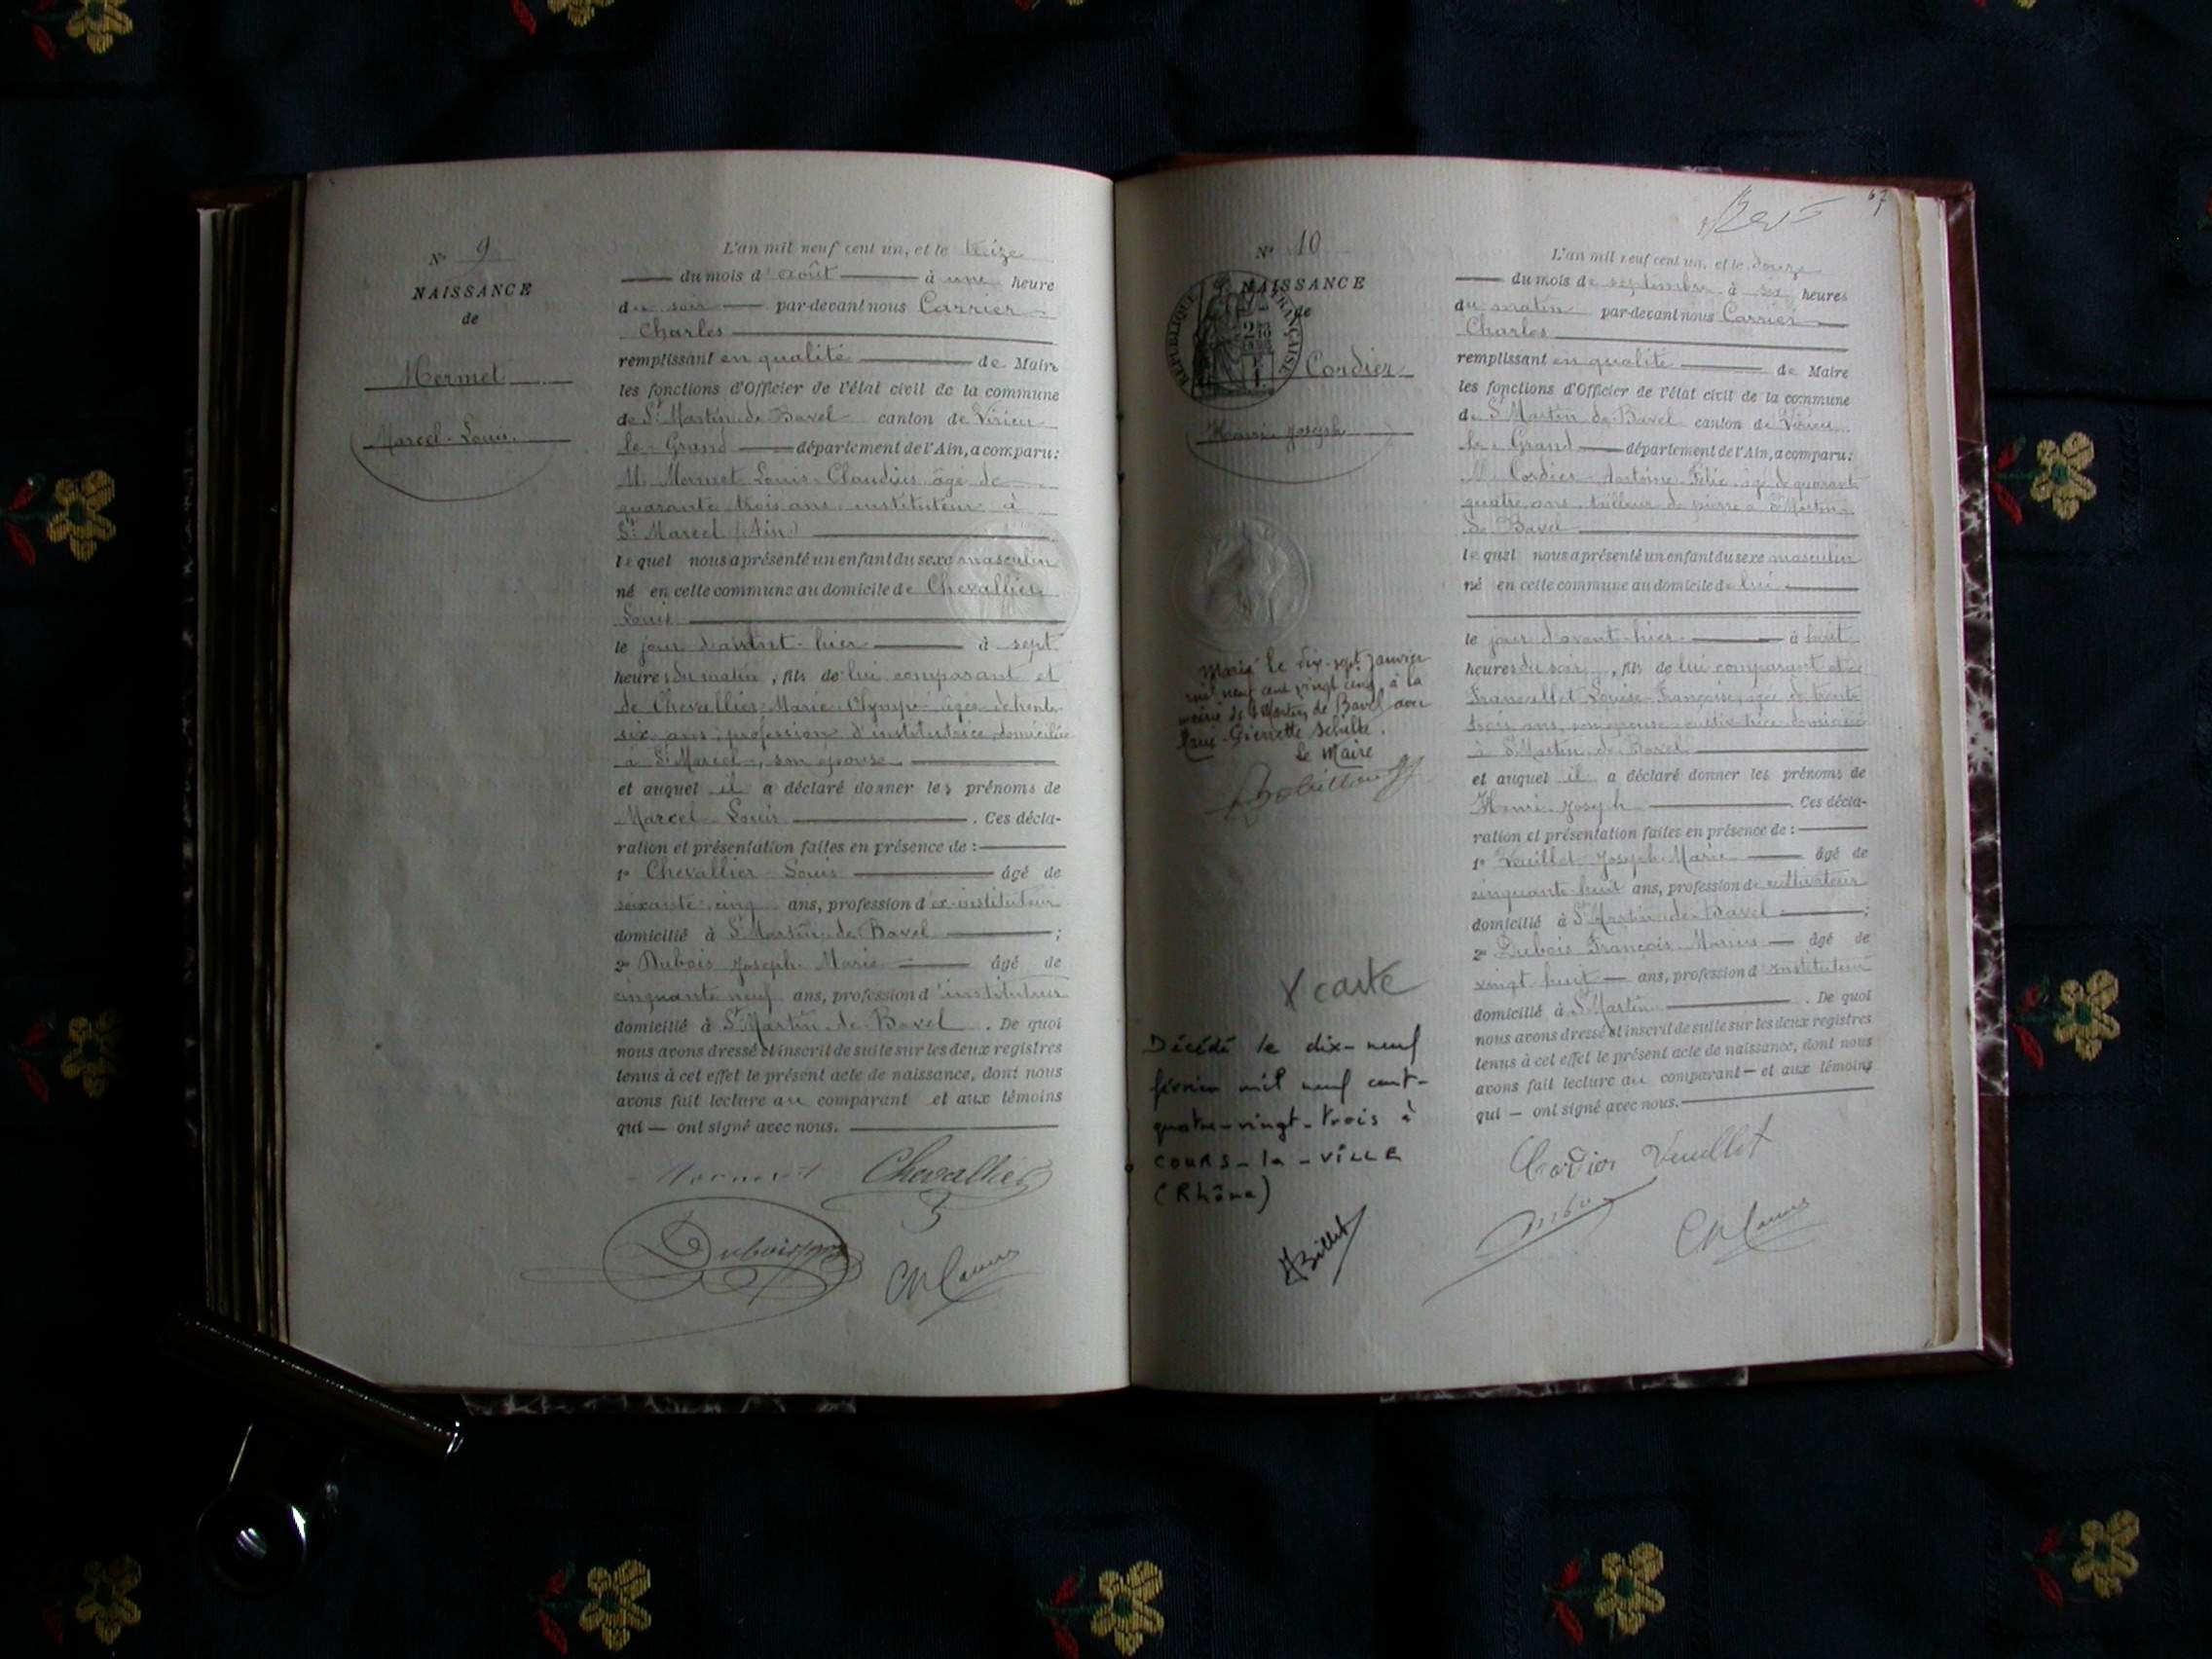 N° 9
NAISSANCE
de
Mermet
Marcel-Louis
L'an mil neuf cent un, et le treize
du mois d'août à une heure
du soir par-devant nous Carrier
Charles
remplissant en qualité de Maire
les fonctions d'Officier de l'état civil de la commune
de St Martin de Bavel canton de Virieu
le-Grand département de l'Ain, a comparu:
M. Mermet Louis-Claudius âgé de
quarante trois ans instituteur à
St Marcel (Ain)
lequel nous a présenté un enfant du sexe masculin
né en cette commune au domicile de Chevallier
Louis
le jour d'avant-hier à sept
heures du matin, fils de lui comparant et
de Chevallier Marie Olympe âgée de trente
six ans, profession d'institutrice, domiciliée
à St Marcel, son épouse
et auquel il a déclaré donner les prénoms de
Marcel Louis. Ces décla-
ration et présentation faites en présence de:
1° Chevallier Louis âgé de
soixante-cinq ans, profession d'ex-instituteur
domicilié à St Martin de Bavel;
2° Dubois Joseph Marie âgé de
cinquante neuf ans, profession d'instituteur
domicilié à St Martin de Bavel. De quoi
nous avons dressé et inscrit de suite sur les deux registres
tenus à cet effet le présent acte de naissance, dont nous
avons fait lecture au comparant et aux témoins
qui — ont signé avec nous.
Mermet Chevallier
Dubois
67
N° 10
NAISSANCE
de
RÉPUBLIQUE FRANÇAISE
Cordier
Henri Joseph
Marié le dix-sept janvier
mil neuf cent vingt cinq à la
mairie de St Martin de Bavel avec
Pierrette Schulte.
Le Maire
X carte
Décédé le dix-neuf
février mil neuf cent-
quatre-vingt-trois à
COURS-la-VILLE
(Rhône)
Billet
L'an mil neuf cent un, et le douze
du mois de septembre à heures
du matin par-devant nous Carrier
Charles
remplissant en qualité de Maire
les fonctions d'Officier de l'état civil de la commune
de St Martin de Bavel canton de Virieu
le-Grand département de l'Ain, a comparu:
M. Cordier Antoine Félix âgé de quarante
quatre ans, tailleur de pierre à St Martin
de Bavel
lequel nous a présenté un enfant du sexe masculin
né en cette commune au domicile de lui
le jour d'avant-hier à huit
heures du soir, fils de lui comparant et de
Louise Françoise, âgée de trente
trois ans, son épouse cultivatrice domiciliée
à St Martin de Bavel
et auquel il a déclaré donner les prénoms de
Henri Joseph. Ces décla-
ration et présentation faites en présence de:
1° Vuillet Joseph Marie âgé de
cinquante-huit ans, profession de cultivateur
domicilié à St Martin de Bavel;
2° Dubois François Marius — âgé de
vingt huit — ans, profession d'instituteur
domicilié à St Martin. De quoi
nous avons dressé et inscrit de suite sur les deux registres
tenus à cet effet le présent acte de naissance, dont nous
avons fait lecture au comparant — et aux témoins
qui — ont signé avec nous.
Cordier Vuillet